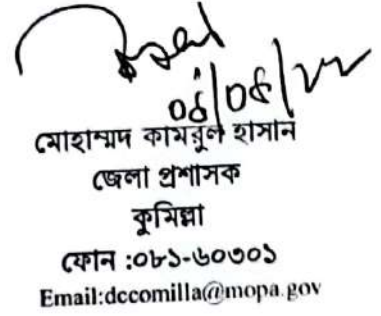 ০৪/০৪/২২
মোহাম্মদ কামরুল হাসান
জেলা প্রশাসক
কুমিল্লা
ফোন :০৮১-৬০৩০১
Email:dccomilla@mopa.gov